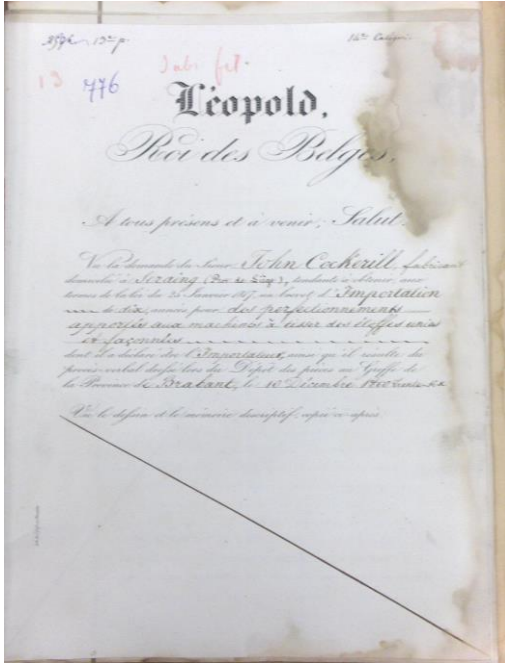 13
776
Léopold,
Roi des Belges,
A tous présens et à venir, Salut.
Vu la demande du Sieur John Cockerill, fabricant
domicilié à Seraing tendante à obtenir, aux
termes de la loi du 25 Janvier 1817, un brevet d'Importation
de dix années pour des perfectionnements
apportés aux machines à tisser des étoffes unies
et façonnées
dont il a déclaré être l'Importateur, ainsi qu'il résulte du
procès-verbal dressé lors du Dépôt des pièces au Greffe de
la Province de Brabant, le 10 Décembre
Vu le dessin et le mémoire descriptif, copié ci-après.